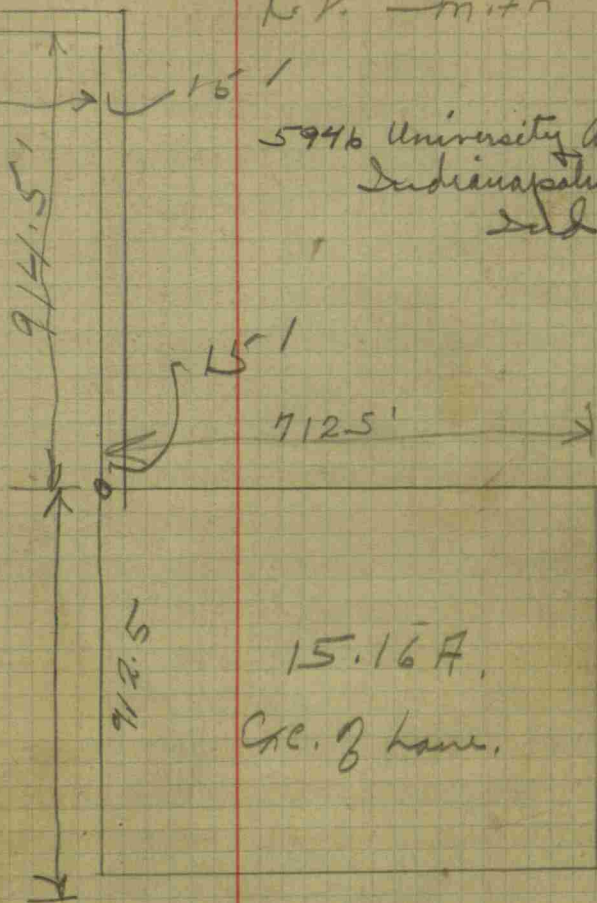 15'
5946 University
Indianapolis
Ind
914.5'
15'
712.5'
912.5
15.16 A.
Exc. of Lane.